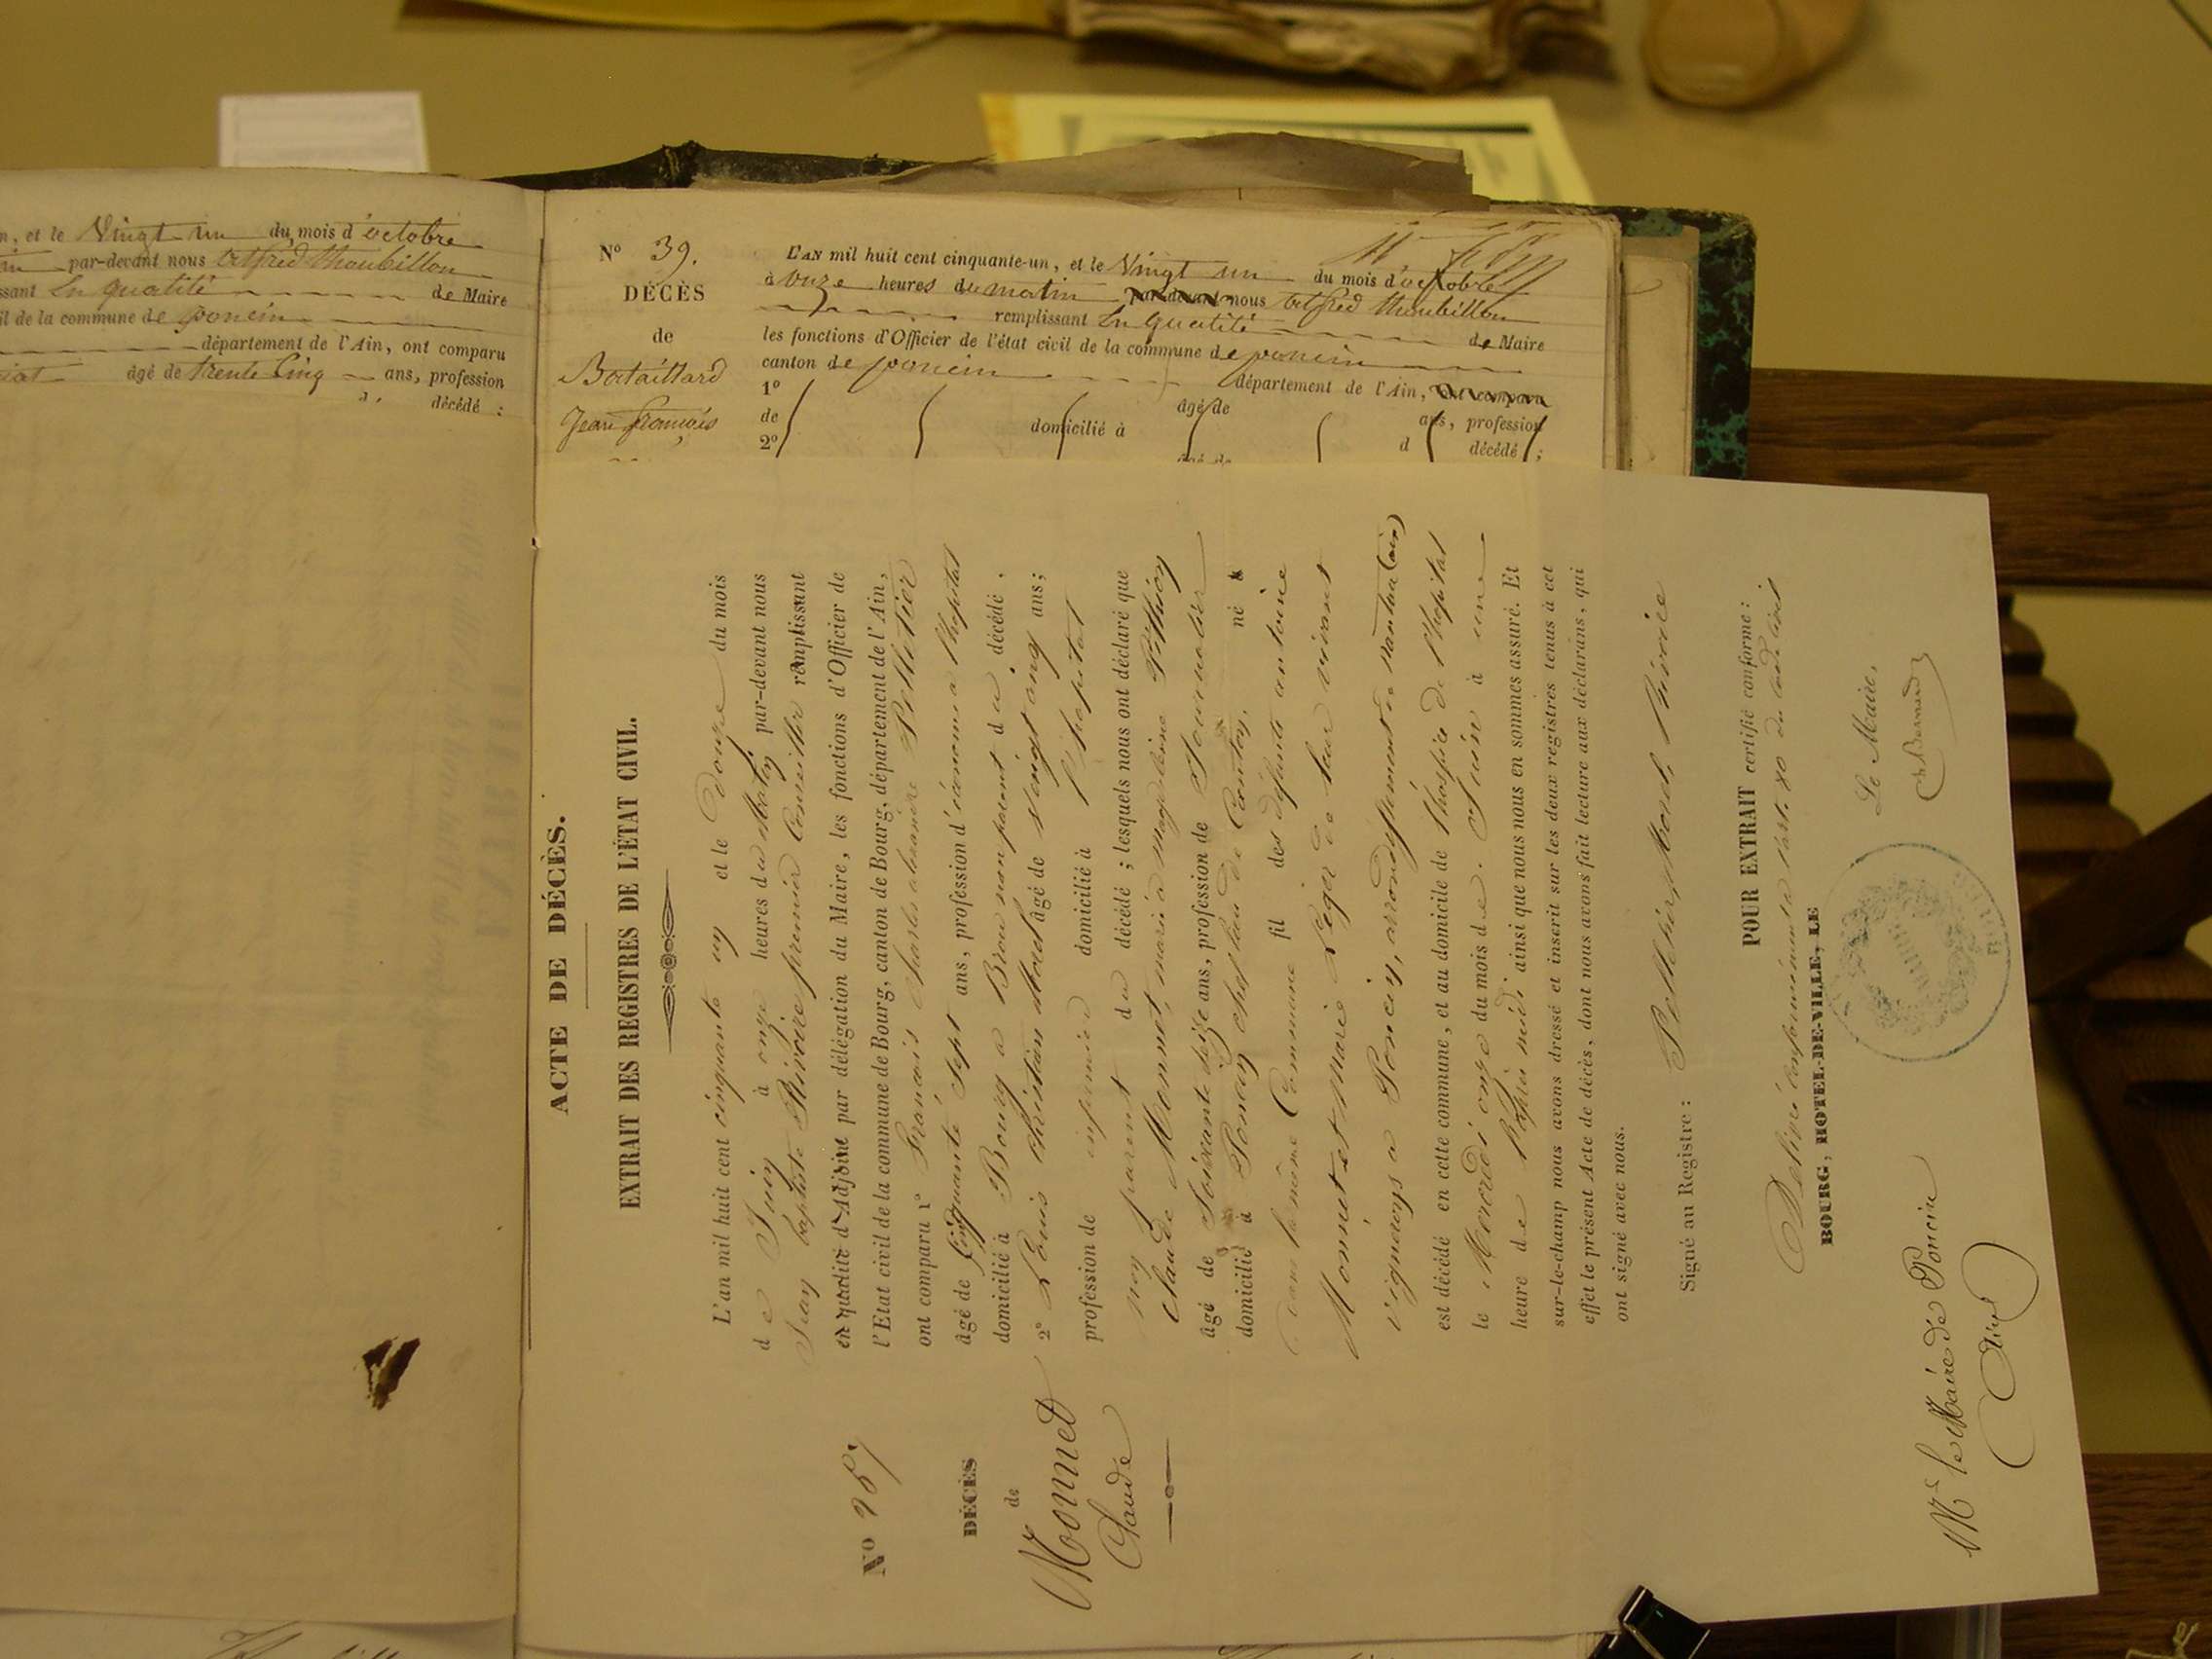 n, et le Vingt un du mois d'octobre
par-devant nous
ssant En qualité de Maire
il de la commune de poncin
département de l'Ain, ont comparu
âgé de trente Cinq ans, profession
d' décédé ;
N° 39.
DÉCÈS
de
Bataillard
Jean françois
L'AN mil huit cent cinquante-un, et le Vingt un du mois d'octobre
à onze heures du matin par-devant nous
remplissant En qualité de Maire
les fonctions d'Officier de l'état civil de la commune de poncin
canton de poncin département de l'Ain, ont comparu
1° âgé de ans, profession
de domicilié à d décédé ;
2° âgé de
ACTE DE DÉCÈS.
EXTRAIT DES REGISTRES DE L'ÉTAT CIVIL.
N° 257
DÉCÈS
de
Monnet
Claude
L'an mil huit cent cinquante un et le Douze du mois
de Juin à onze heures du Matin par-devant nous
Jean baptiste Rivoire premier Conseiller remplissant
en qualité d'Adjoint par délégation du Maire, les fonctions d'Officier de
l'Etat civil de la commune de Bourg, canton de Bourg, département de l'Ain,
ont comparu 1° François Charles alexandre Pelletier
âgé de Cinquante Sept ans, profession d'économe a l'hopital
domicilié à Bourg a Brou non parent du décédé.
2° Louis Christian Morel âgé de vingt cinq ans;
profession de infirmier domicilié à l'hopital
non parent du décédé ; lesquels nous ont déclaré que
Claude Monnet, marié a Magdeleine
âgé de Soixante seize ans, profession de Journalier
domicilié à Poncin chef lieu de Canton, né
dans la même Commune fil des défunts antoine
Monnet et Marie Leger de leur vivant
vignerons a Poncin, arrondissement de nantua (ain)
est décédé en cette commune, et au domicile de l'hospice de l'hopital
le Mercredi onze du mois de Juin à une
heure de l'après midi ainsi que nous nous en sommes assuré. Et
sur-le-champ nous avons dressé et inscrit sur les deux registres tenus à cet
effet le présent Acte de décès, dont nous avons fait lecture aux déclarans, qui
ont signé avec nous.
Signé au Registre : Pelletier, Morel, Rivoire
POUR EXTRAIT certifié conforme :
Délivré conformément a l'art. 80 du Code Civil
BOURG, HOTEL-DE-VILLE, LE
Le Maire,
Bernard
Mr le Maire de Poncin
(Ain)